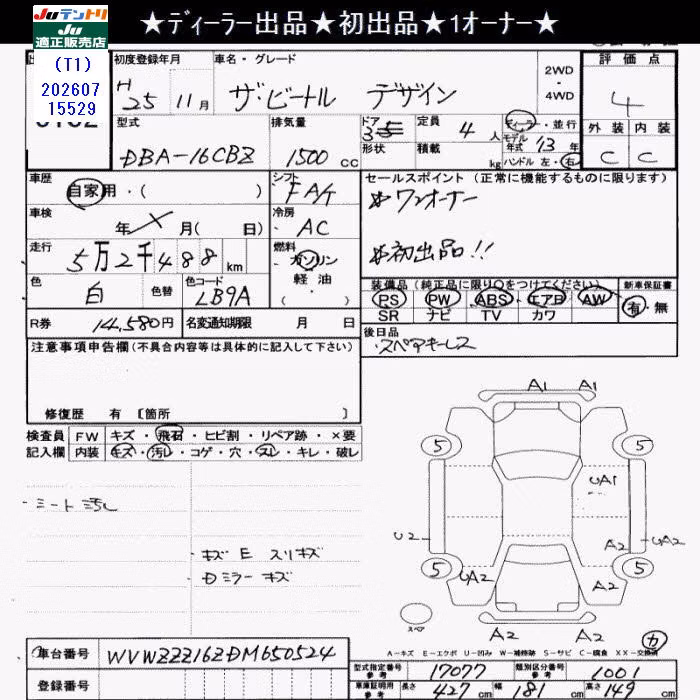 ★ディーラー出品★初出品★1オーナー★
JUテントリ
JU
適正販売店
(T1)
202607
15529
初度登録年月 車名・グレード
H25 11月 ザ・ビートル デザイン
2WD
・
4WD
評価点
4
外装 内装
C C
型式 排気量 ドア 定員 ディーラー・並行
DBA-16CBZ 1500cc 3 4人 モデル年式 13年
形状 積載 kg ハンドル 左・右
車歴 シフト セールスポイント(正常に機能するものに限ります)
自家用・( ) FA/T ワンオーナー
車検 冷房
年 X 月( 日) AC 初出品!!
走行 燃料
5万2千488km ガソリン
軽油・
( )
色 色替 色コード
白 LB9A
装備品(純正品に限り○をつけてください) 新車保証書
PS PW ABS エアB AW 有・無
SR ナビ TV カワ
R券 14,580円 名変通知期限 月 日
後日品
・スペアキーレス
注意事項申告欄(不具合内容等は具体的に記入して下さい)
修復歴 有 [箇所 ]
検査員 FW キズ・飛石・ヒビ割・リペア跡・×要
記入欄 内装 キズ・汚レ・コゲ・穴・スレ・キレ・破レ
A1 A1
5 5
UA1
U2 A2 UA2
5 5
UA2 A2
A2 A2
スペア
カ
・シート汚レ
・キズ E スリキズ
・Dミラーキズ
A-キズ E-エクボ U-凹み W-補修跡 S-サビ C-腐食 XX-交換済
車台番号 WVWZZZ16ZDM650524
登録番号
型式指定番号 参考 17077 類別区分番号 参考 1001
車庫証明用 参考 長さ 427cm 幅 181cm 高さ 149cm